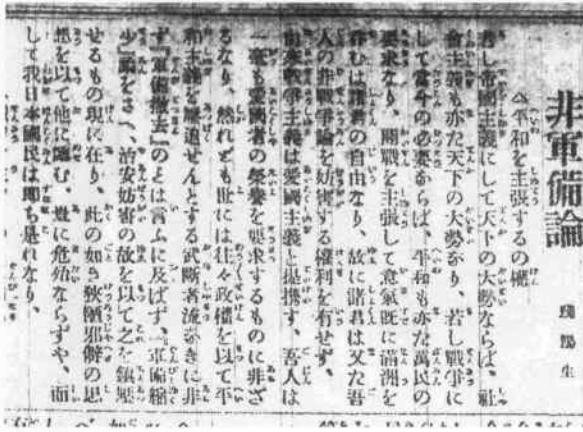 非軍備論
殘陽生
△平和を主張するの權
若し帝國主義にして天下の大勢ならば、社
會主義も亦た天下の大勢なり、若し戰爭に
して當今の必要ならば、平和も亦た萬民の
要求なり、開戰を主張して意氣既に滿洲を
呑むは諸君の自由なり、故に諸君は又た吾
人の非戰爭論を妨害する權利を有せず、
由來戰爭主義は愛國主義と提携す、吾人は
一毫も愛國者の榮譽を要求するものに非ざ
るなり、然れども世には往々政權を以て平
和主義を壓迫せんとする武斷者流なきに非
ず『軍備撤去』のとは言ふに及ばず、『軍備縮
少』論をさへ、治安妨害の故を以て之を鎭壓
せるもの現に在り、此の如き狹隘邪僻の思
想を以て他に臨む、豈に危殆ならずや、而
して我日本國民は即ち是れなり、